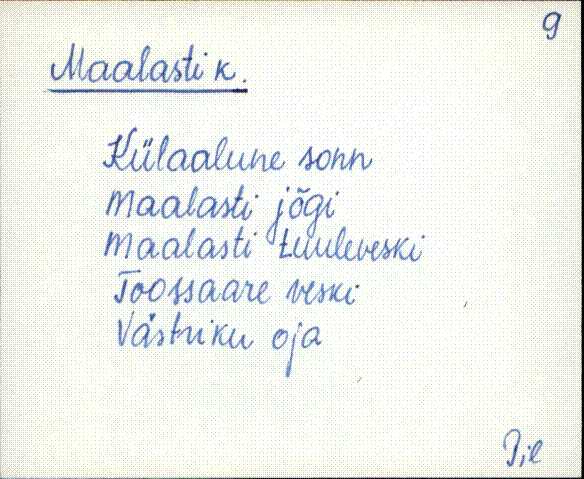 9
Maalasti k.
Külaalune sonn
Maalasti jõgi
Maalasti tuuleveski
Toossaare veski
Västriku oja
Pil